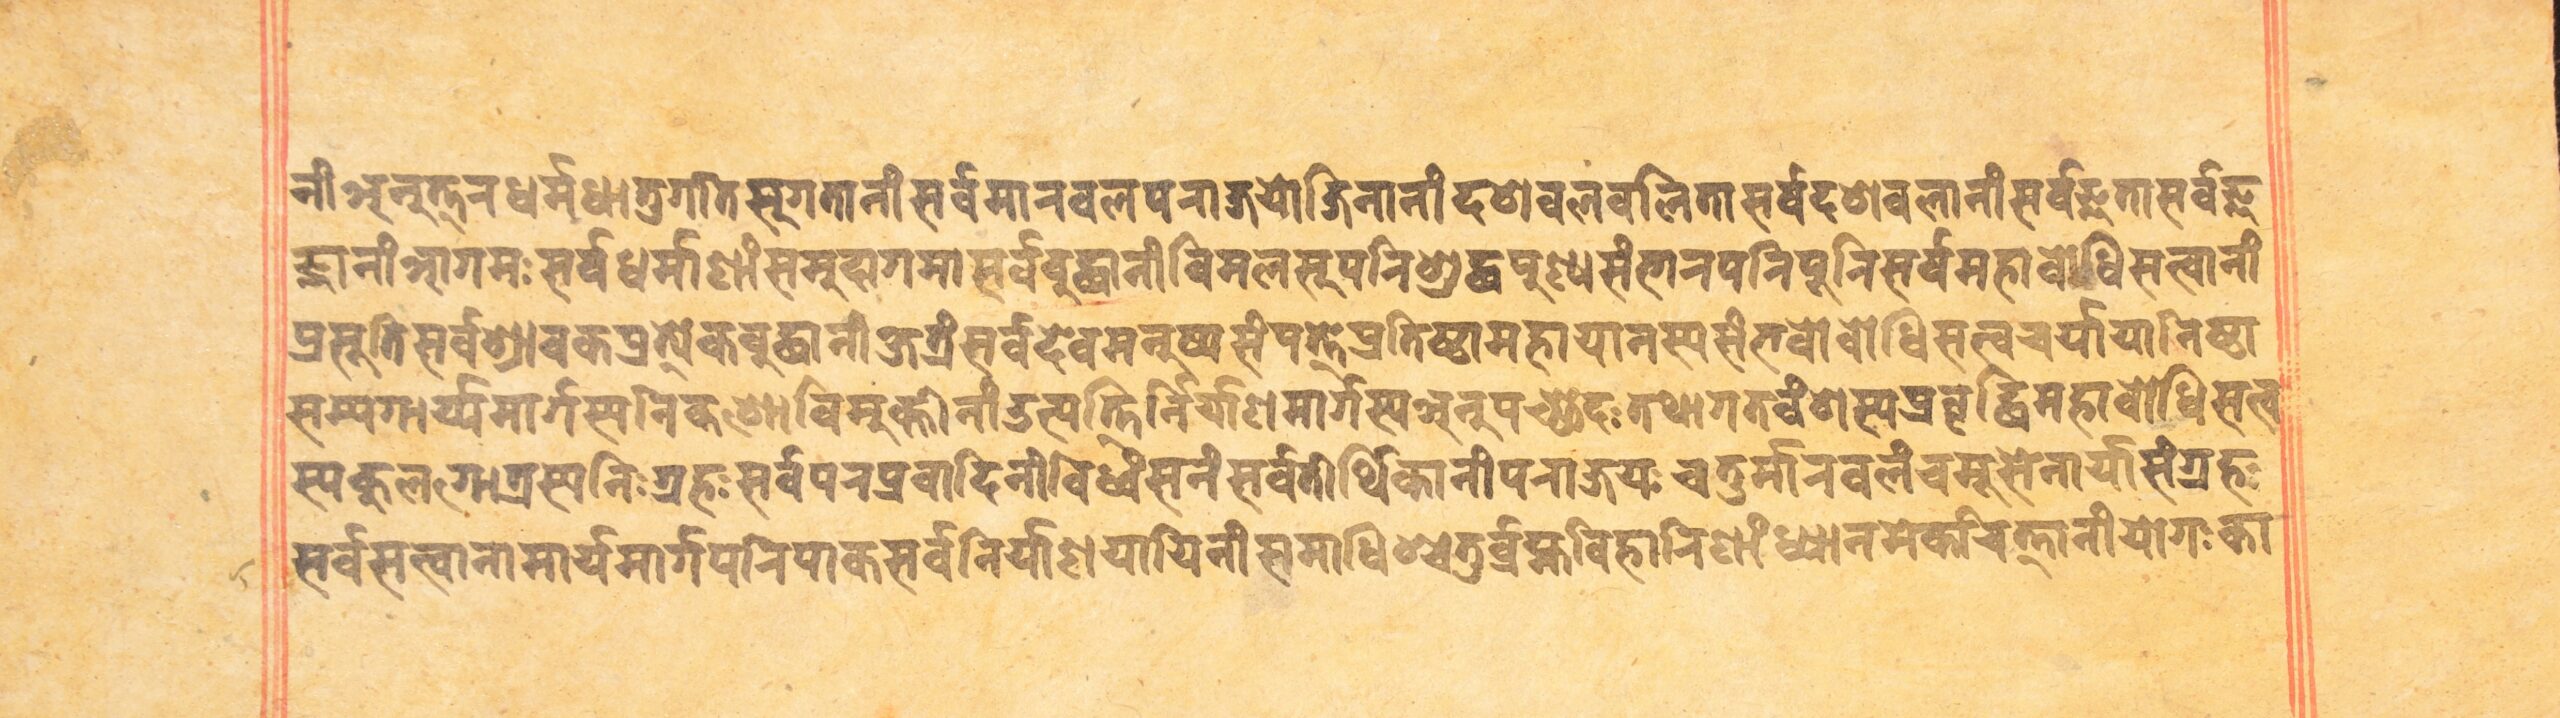 नीअनुत्तनधर्मधातुगतिसुगतानीसर्वमानवलपनाजयोजिनानीदशवलवलितासर्वदशवलानीसर्वज्ञतासर्वज्ञ
ज्ञानीआगमःसर्वधर्माणांसमुदागमासर्वबुद्धानीविमलसूपनिशुद्धपुण्यसंभानपनिपूनिसर्वमहाबोधिसत्वानी
प्रसूतिसर्वश्रावकप्रत्येकबुद्धानीक्षत्रंसर्वदेवमनुष्यसंपत्तेप्रतिष्ठामहायानस्यसंभवोबोधिसत्वचर्यायानिष्ठा
सम्यगार्य्यमार्गस्यनिकषोविमुक्तीनांउत्पत्तिर्निर्याणमार्गस्यअनुपच्छेदःतथागतवंशस्यप्रवृद्धिमहाबोधिसत्व
स्यकुलगोत्रस्यनिःग्रहःसर्वपनप्रवादिनीविध्वंसनंसर्वतीर्थिकानीपनाजयःचतुर्मानवलंचमूसेनार्यासंग्रहः
सर्वसत्वानामार्यमार्गपनिपाकसर्वनिर्याणयायिनीसमाधिश्चतुर्ब्रह्मविहानिणांध्यानमेकचित्तानीयोगःका